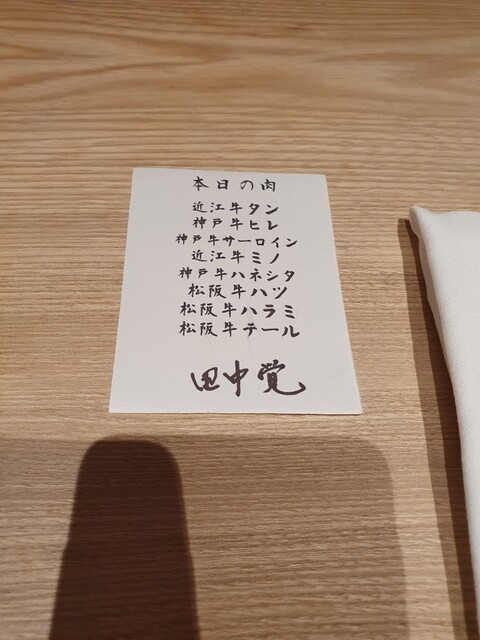 本日の肉
近江牛タン
神戸牛ヒレ
神戸牛サーロイン
近江牛ミノ
神戸牛ハネシタ
松阪牛ハツ
松阪牛ハラミ
松阪牛テール
田中覚